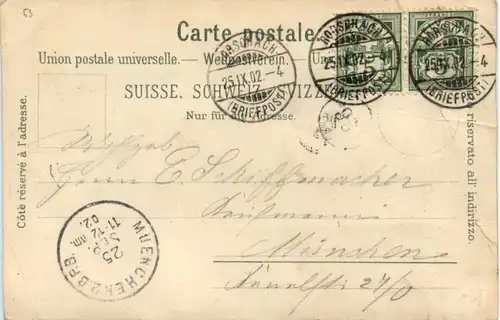 63
Carte postale.
Union postale universelle. — Weltpostverein. — Un
SUISSE. SCHWEIZ. SVIZZE
Nur für
Côté réservé à l'adresse.
riservato all' indirizzo.
RORSCHACH
25.IX.02.–4
(BRIEFPOST)
RORSCHACH
25.IX.02.–4
(BRIEFPOST)
RORSCHACH
25.IX.02.–4
(BRIEFPOST)
Herrn E. Schiffmacher
Kaufmann
München
27/0
MUENCHEN 2.B.P.B.
25
SEP.
11-12
02.